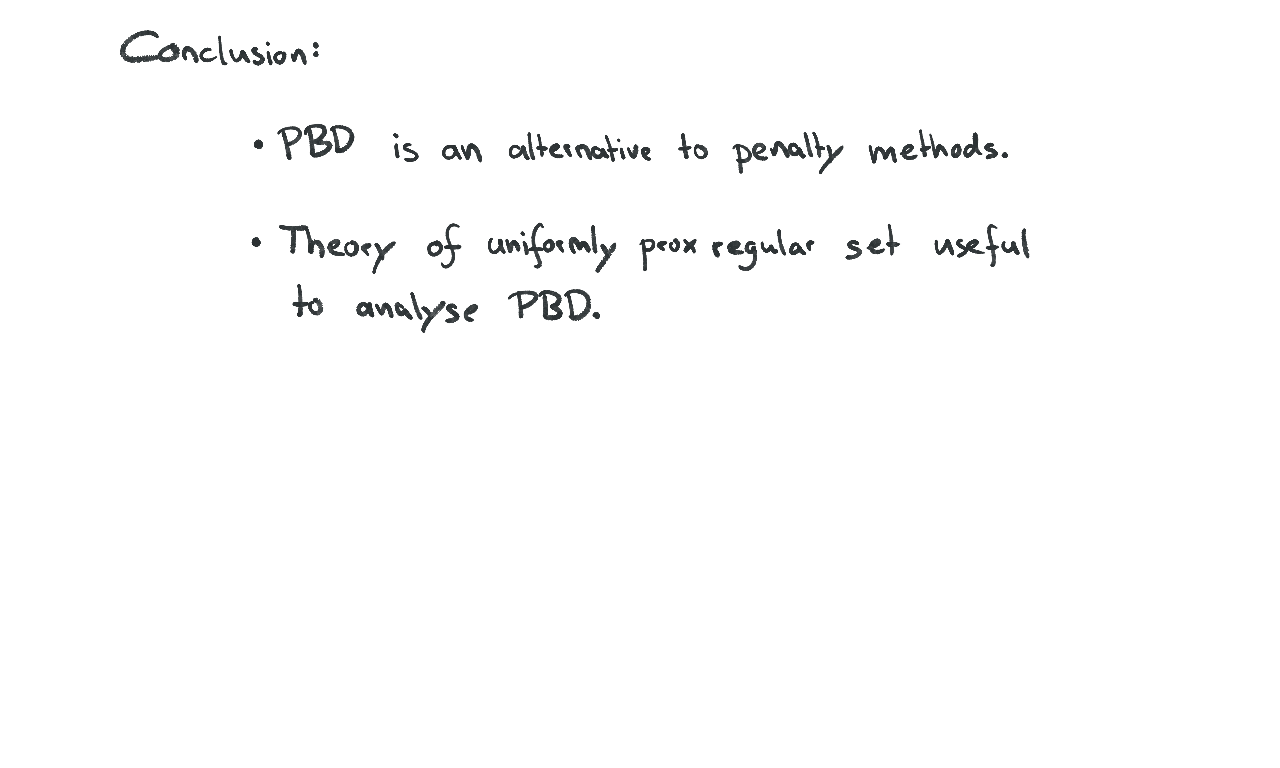 Conclusion:
• PBD is an alternative to penalty methods.
• Theory of uniformly prox regular set useful
to analyse PBD.